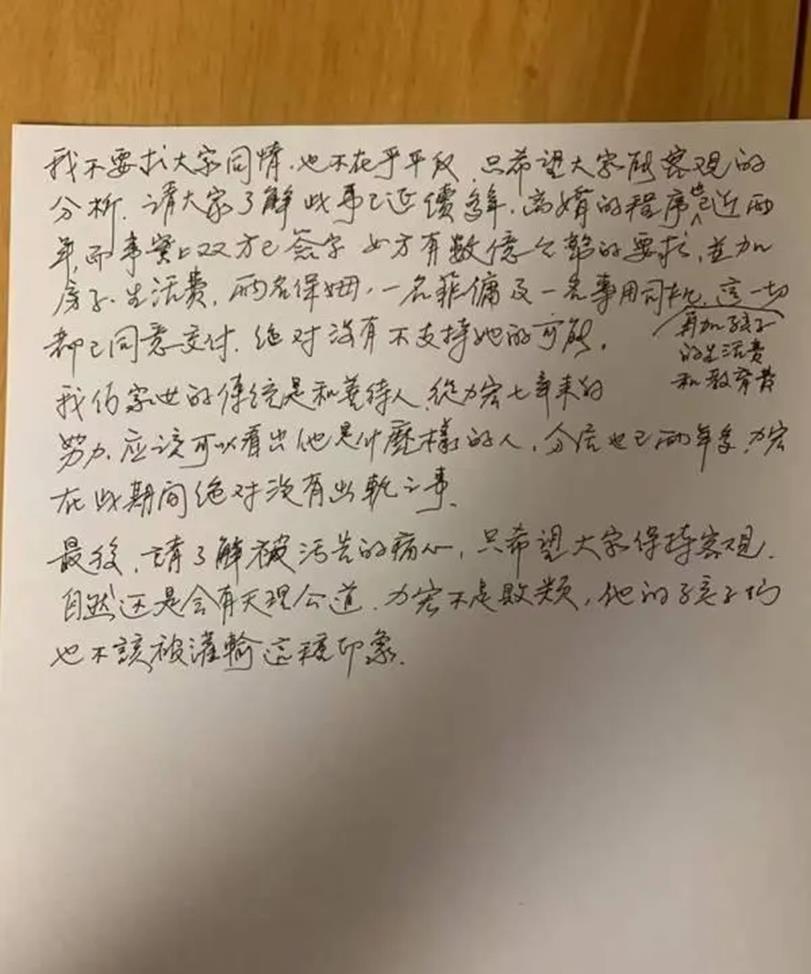 我不要求大家同情.也不在乎平反.只希望大家能客观的
分析.請大家了解此事已延續多年.离婚的程序也已近兩
年,而事實上双方已簽字 女方有數億金額的要求,並加
房子.生活費,兩名保姆,一名菲傭及一名專用司机.這一切
再加孩子
的生活费
和教育費
都已同意交付.绝对沒有不支持她的可能.
我们家世的傳統是和善待人.從力宏七年来的
努力.应該可以看出他是什麼樣的人,分居也已兩年多.力宏
在此期间绝对沒有出軌之事.
最後,請了解被污告的痛心,只希望大家保持客观.
自然还是会有天理公道.力宏不是敗類,他的孩子们
也不該被灌輸這種印象.